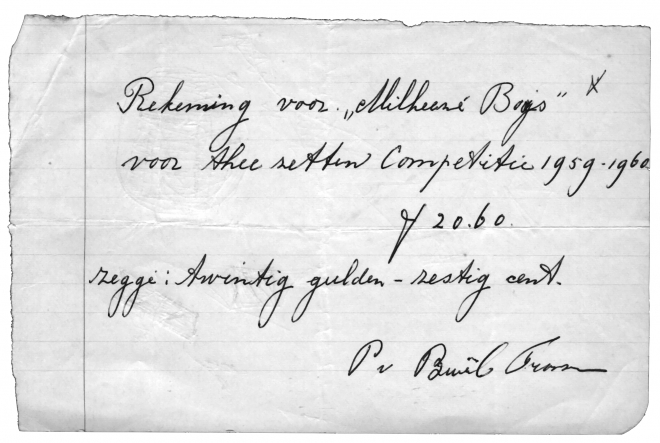 Rekening voor „Milheezé Boys”
voor thee zetten Competitie 1959-1960
ƒ 20.60.
zegge: twintig gulden - zestig cent.
P v